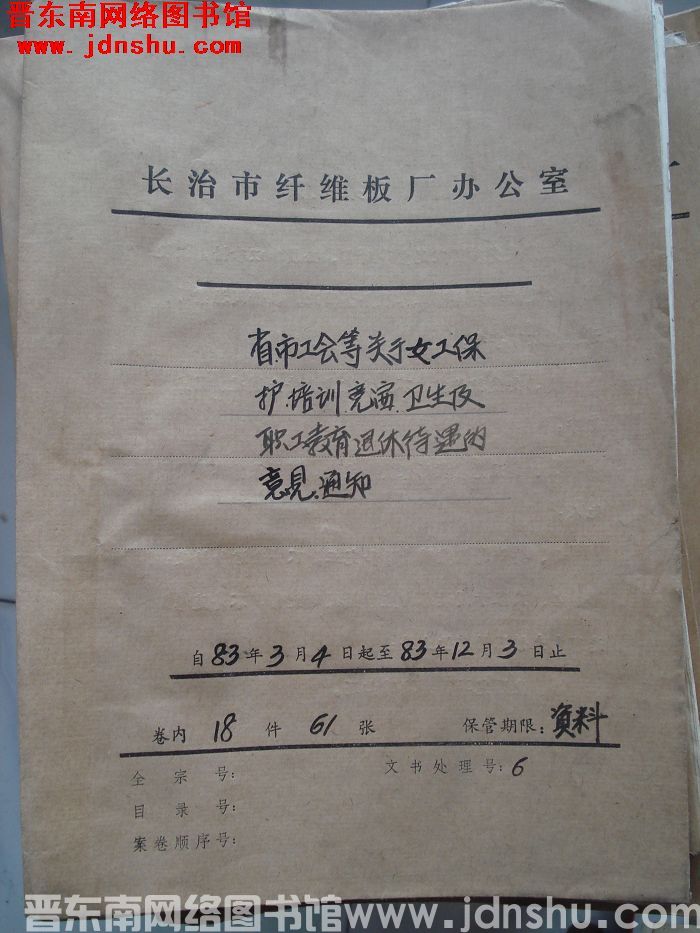 晋东南网络图书馆
www.jdnshu.com
长治市纤维板厂办公室
省市工会等关于女工保
护.培训竞演.卫生及
职工教育退休待遇的
意见.通知
自83年3月4日起至83年12月3日止
卷内 18 件 61 张 保管期限:资料
全宗号: 文书处理号:6
目录号:
案卷顺序号:
晋东南网络图书馆 www.jdnshu.com